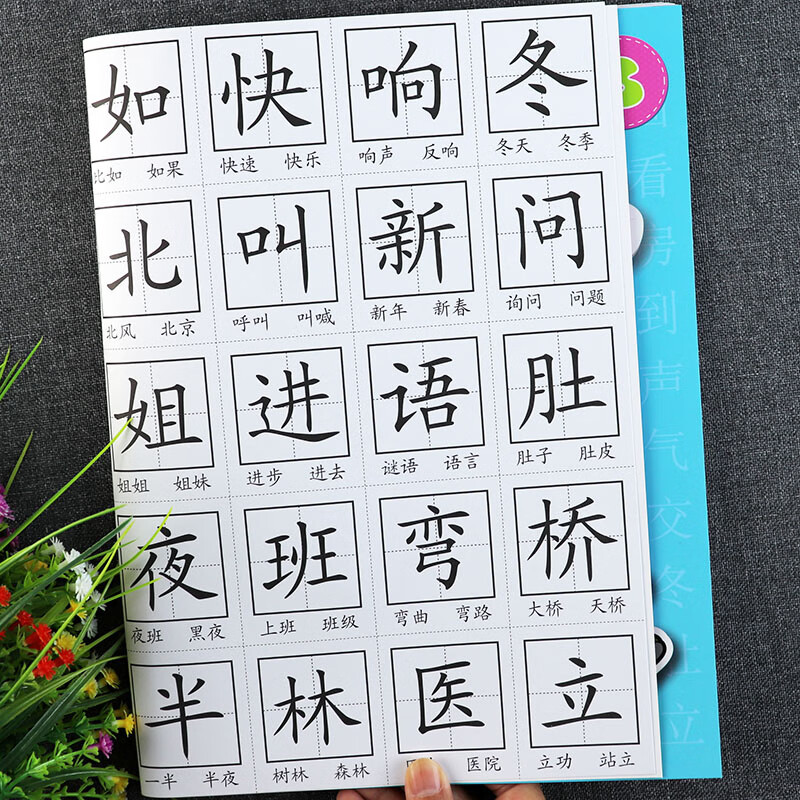 如 快 响 冬
比如 如果 快速 快乐 响声 反响 冬天 冬季
北 叫 新 问
北风 北京 呼叫 叫喊 新年 新春 询问 问题
姐 进 语 肚
姐姐 姐妹 进步 进去 谜语 语言 肚子 肚皮
夜 班 弯 桥
夜班 黑夜 上班 班级 弯曲 弯路 大桥 天桥
半 林 医 立
一半 半夜 树林 森林 医院 立功 站立
看
房
到
声
气
交
冬
上
立